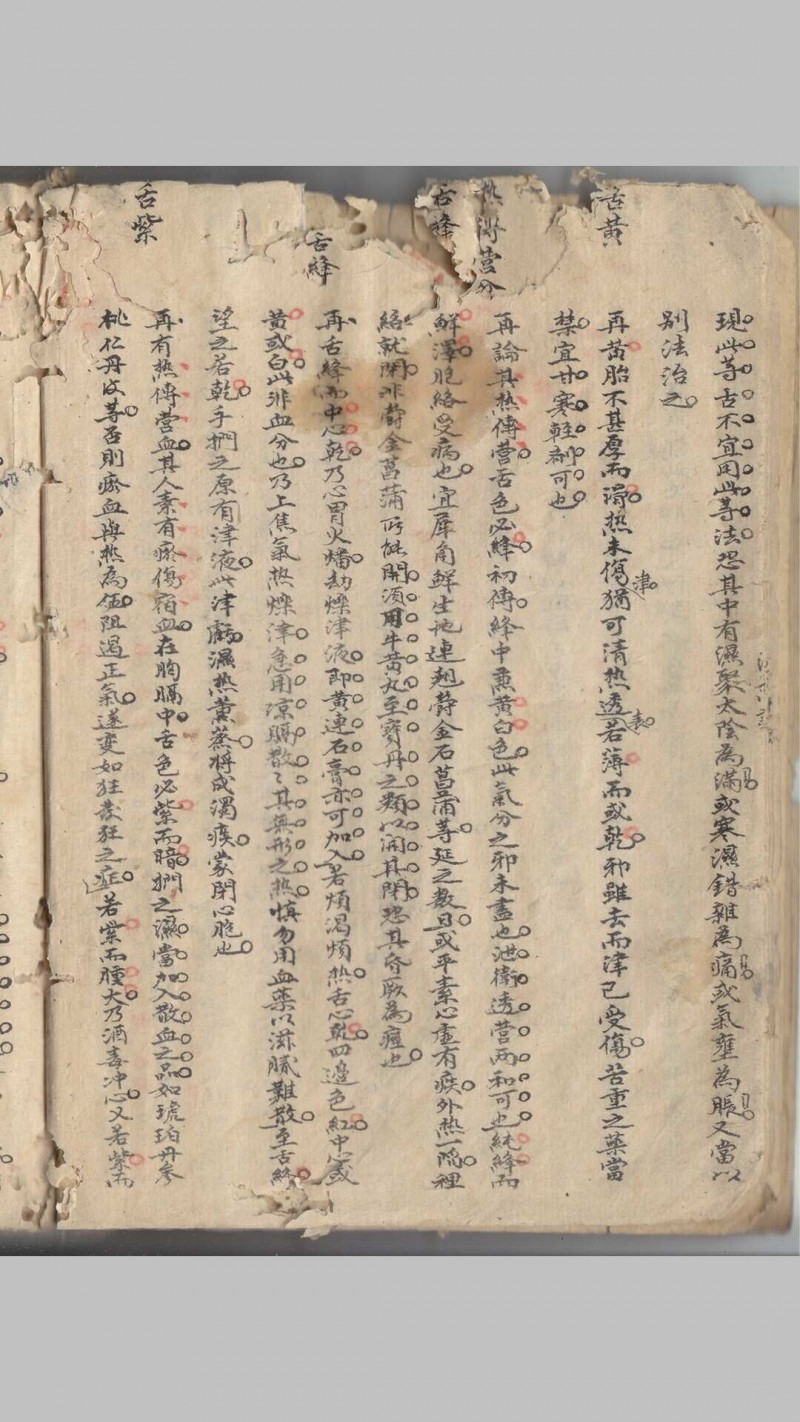 現此等舌不宜用此等法恐其中有濕聚太陰為滿或寒濕錯雜為痛或氣壅為脹又當以
別法治之
舌黃
再黃胎不甚厚而滑熱未傷津猶可清熱透表若薄而或乾邪雖去而津已受傷苦重之藥當
禁宜甘寒輕劑可也
熱傳營分
舌絳
再論其熱傳營舌色必絳初傳絳中熏黃白色此氣分之邪未盡也泄衛透營兩和可也純絳而
鮮澤胞絡受病也宜犀角鮮生地連翹欝金石菖蒲等延之數日或平素心虛有痰外熱一陷裡
絡就閉非欝金菖蒲所能開須用牛黃丸至寶丹之類以開其閉恐其昏厥為痙也
舌絳
再舌絳而中心乾乃心胃火燔劫爍津液即黃連石膏亦可加入若煩渴煩熱舌心乾四邊色紅中心或
黃或白此非血分也乃上焦氣熱爍津急用凉膈散々其無形之熱慎勿用血藥以滋膩難散至舌絳
望之若乾手捫之原有津液此津虧濕熱薰蒸將成濁痰蒙閉心胞也
舌紫
再有熱傳營血其人素有瘀傷宿血在胸膈中舌色必紫而暗捫之濕當加入散血之品如琥珀丹參
桃仁丹皮等否則瘀血與熱為伍阻遏正氣遂變如狂發狂之症若紫而腫大乃酒毒冲心又若紫而